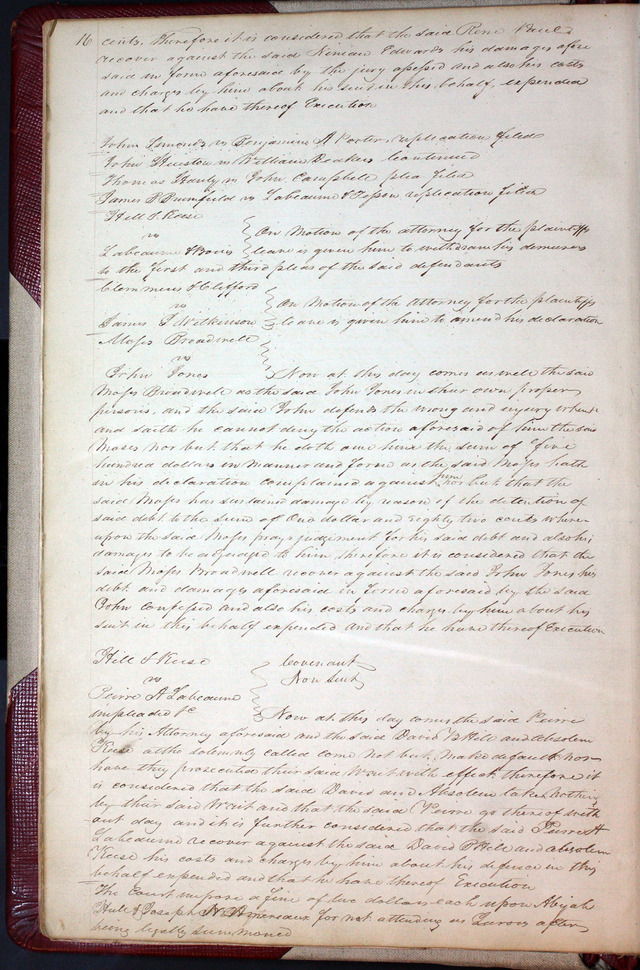 16
cents, therefore it is considered that the said Rene Paul
recover against the said Ninian Edwards his damages afore
said in form aforesaid by the jury assessed and also his costs
and charges by him about his suit in this behalf expended
and that he have thereof Execution
John Simonds vs Benjamin A Porter, replication filed
John Heuston vs William Deakers Continued
Thomas Hanly vs John Campbell plea filed
James P Brumfield vs Labeaume & replication filed
Hill & Keese
vs
Labeaume & Bovis
On Motion of the attorney for the plaintiffs
leave is given him to withdraw his demurers
to the first and third pleas of the said defendants
Clemmens & Clifford
vs
James Wilkinson
On Motion of the Attorney for the plaintiffs
leave is given him to amend his declaration
Moses Broadwell
vs
John Jones
Now at this day comes as well the said
Moses Broadwell as the said John Jones in their own proper
persons, and the said John defends the wrong and injury when &c
and saith he cannot deny the action aforesaid of him the said
Moses nor but that he doth owe him the sum of five
hundred dollars in manner and form as the said Moses hath
in his declaration complained against him nor but that the
said Moses has sustained damage by reason of the detention of
said debt to the sum of One dollar and eighty two cents where
upon the said Moses prays judgement for his said debt and also his
damages to be adjudged to him, therefore it is considered that the
said Moses Broadwell recover against the said John Jones his
debt and damages aforesaid in form aforesaid by the said
John confessed and also his costs and charges by him about his
suit in this behalf expended and that he have thereof Execution
Hill & Keese
vs
Peirre A Labeaume
impleaded &c
Covenant
Non Suit
Now at this day comes the said Peirre
by his Attorney aforesaid and the said David B Hill and Absolem
Keese altho solemnly called come not but make default nor
have they prosecuted their said Writ with effect, therefore it
is considered that the said David and Absolem take nothing
by their said Writ and that the said Peirre go thereof with
out day and it is further considered that the said Peirre A
Labeaume recover against the said David B Hill and absolem
Keese his costs and charges by him about his defence in this
behalf expended and that he have thereof Execution
The Court impose a fine of two dollars each upon Abijah
Hull & Joseph for not attending as Jurors after
being legally summoned